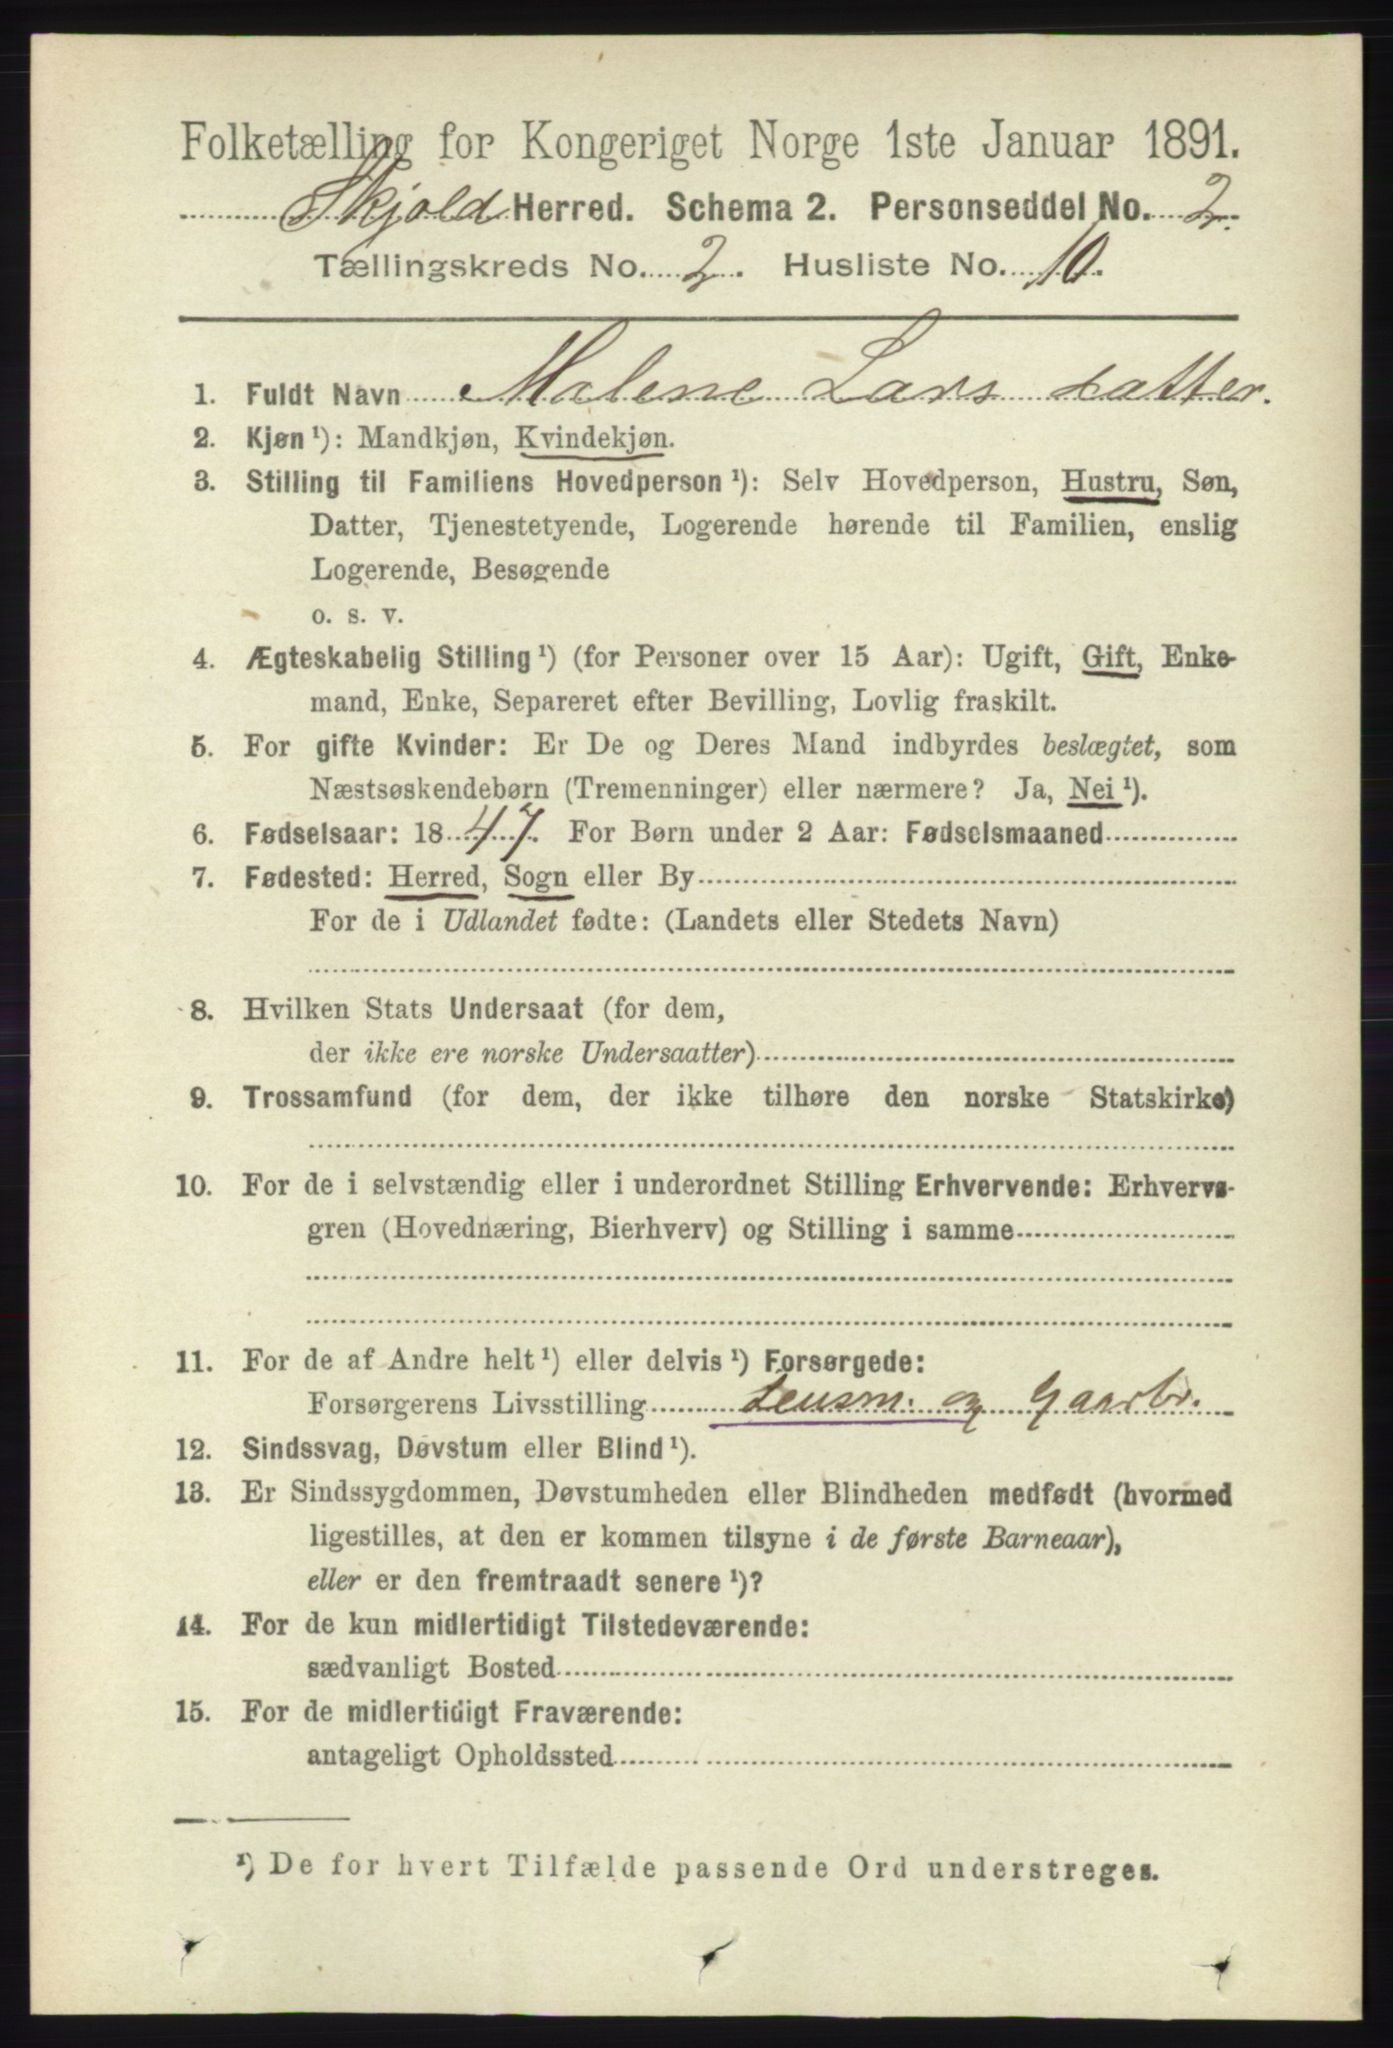 Folketælling for Kongeriget Norge 1ste Januar 1891.
Skjold Herred. Schema 2. Personseddel No. 2.
Tællingskreds No. 2. Husliste No. 10.
1. Fuldt Navn Malene Lars datter.
2. Kjøn¹): Mandkjøn, Kvindekjøn.
3. Stilling til Familiens Hovedperson¹): Selv Hovedperson, Hustru, Søn,
Datter, Tjenestetyende, Logerende hørende til Familien, enslig
Logerende, Besøgende
o. s. v.
4. Ægteskabelig Stilling¹) (for Personer over 15 Aar): Ugift, Gift, Enke-
mand, Enke, Separeret efter Bevilling, Lovlig fraskilt.
5. For gifte Kvinder: Er De og Deres Mand indbyrdes beslægtet, som
Næstsøskendebørn (Tremenninger) eller nærmere? Ja, Nei¹).
6. Fødselsaar: 1847. For Børn under 2 Aar: Fødselsmaaned
7. Fødested: Herred, Sogn eller By
For de i Udlandet fødte: (Landets eller Stedets Navn)
8. Hvilken Stats Undersaat (for dem,
der ikke ere norske Undersaatter)
9. Trossamfund (for dem, der ikke tilhøre den norske Statskirke)
10. For de i selvstændig eller i underordnet Stilling Erhvervende: Erhvervs-
gren (Hovednæring, Bierhverv) og Stilling i samme
11. For de af Andre helt¹) eller delvis¹) Forsørgede:
Forsørgerens Livsstilling Lensm. og Gaardbr.
12. Sindssvag, Døvstum eller Blind¹).
13. Er Sindssygdommen, Døvstumheden eller Blindheden medfødt (hvormed
ligestilles, at den er kommen tilsyne i de første Barneaar),
eller er den fremtraadt senere¹)?
14. For de kun midlertidigt Tilstedeværende:
sædvanligt Bosted
15. For de midlertidigt Fraværende:
antageligt Opholdssted
¹) De for hvert Tilfælde passende Ord understreges.